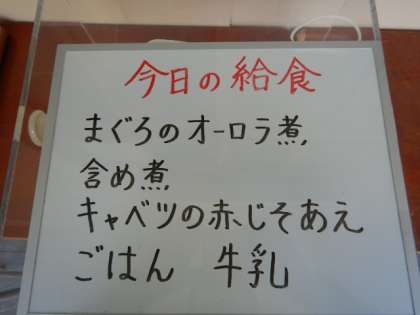 今日の給食
まぐろのオーロラ煮
含め煮
キャベツの赤じそあえ
ごはん 牛乳